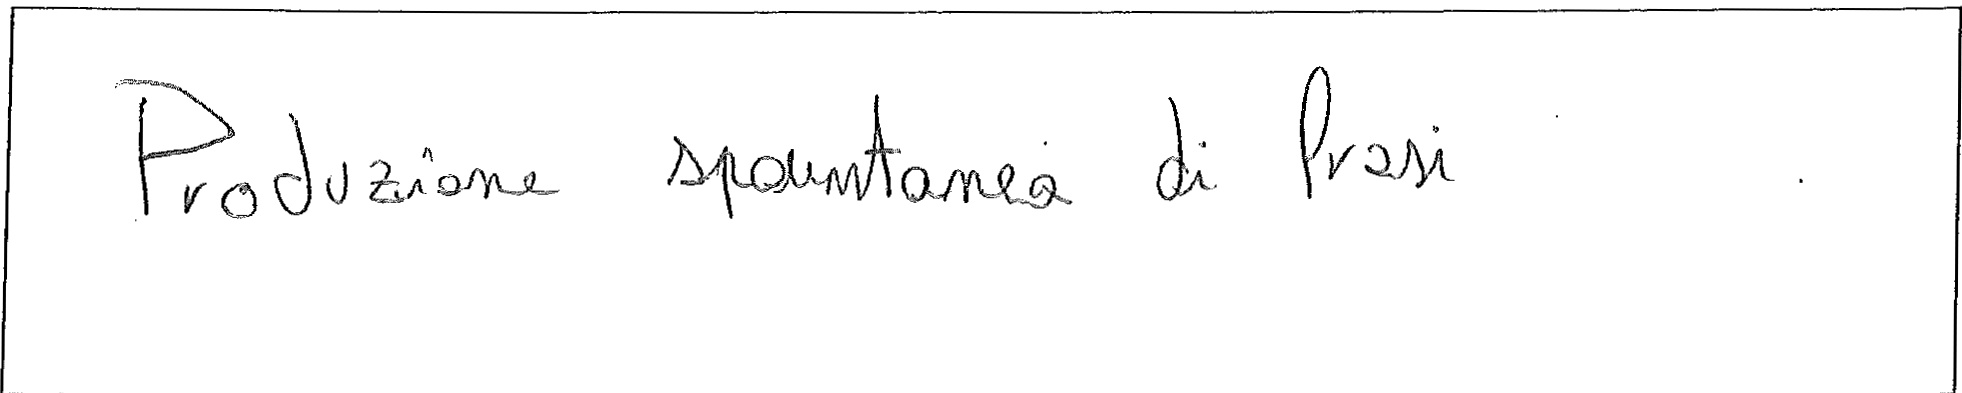 Produzione spountanea di frasi